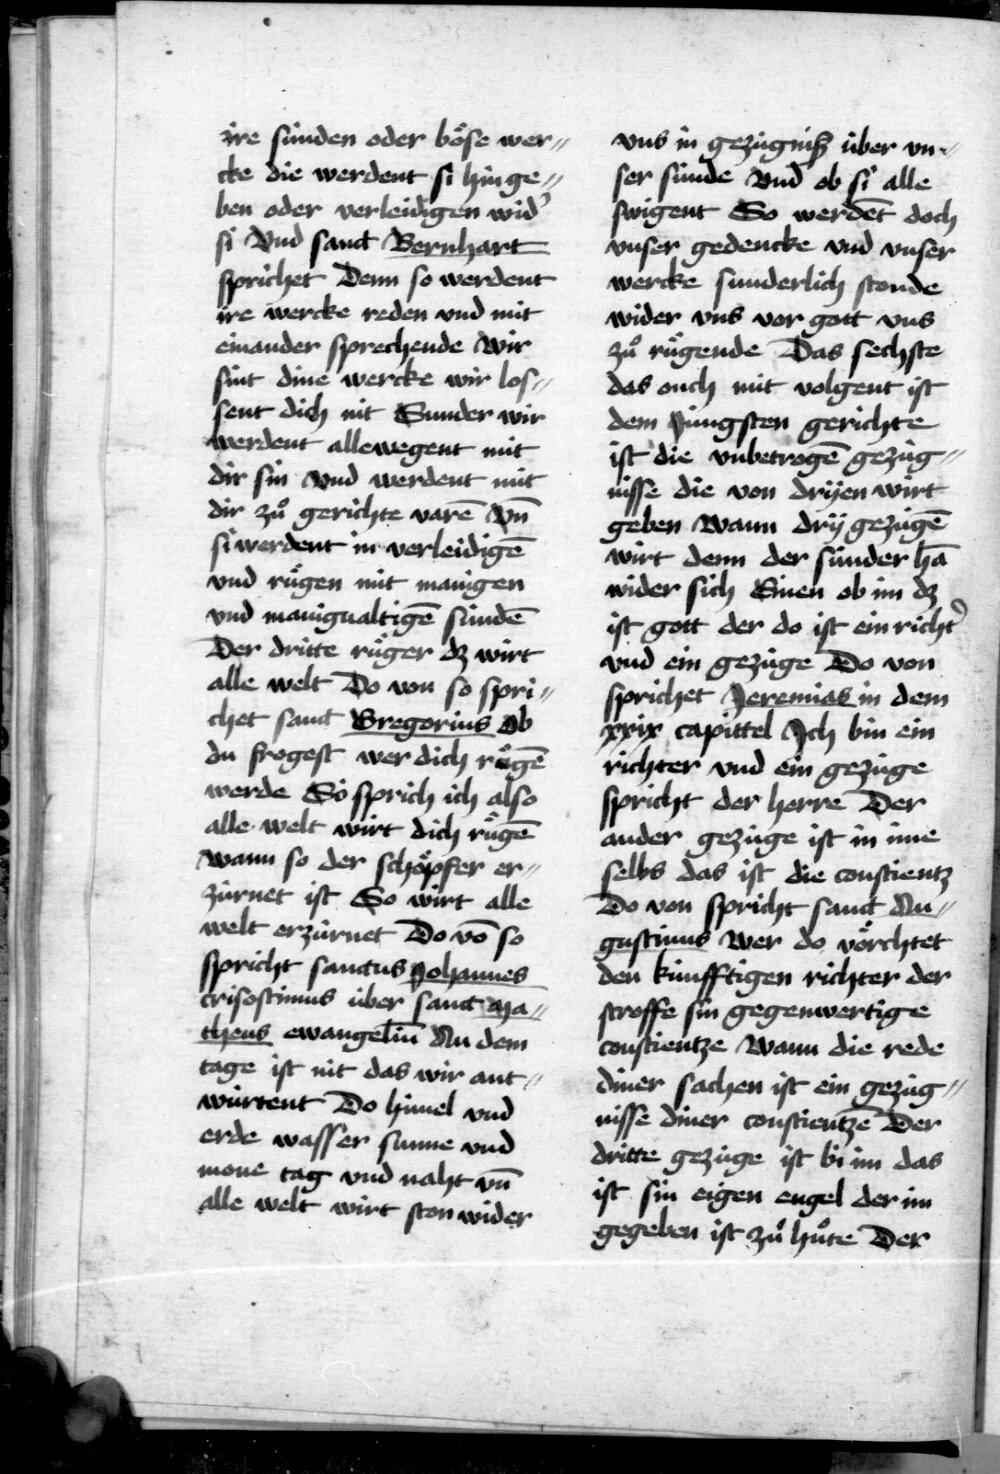 ire sunden oder böse wer〃
cke die werdent si hin ge〃
ben oder verleidigen wid᾽
si Vnd sanct Bernhart
sprichet Denn so werdent
ire wercke reden vnd mit
einander sprechende Wir
sint dine wercke wir los〃
sent dich nit Sunder wir
werdent allewegent mit
dir sin Vnd werdent mit
dir zuͦ gerichte varē Vn̄
si werdent in verleidigē
vnd ruͤgen mit manigen
vnd manigualtigē sundē
Der dritte ruͤger dz wirt
alle welt Do von so spri〃
chet sanct Gregorius Ob
du frogest wer dich ruͤgē
werde So sprich ich also
alle welt wirt dich ruͤgē
Wann so der schöpfer er〃
zúrnet ist So wirt alle
welt erzúrnet Do vō so
spricht sanctus Johannes
crisostimus úber sanct Ma〃
theus ewangeliū An dem
tage ist nit das wir ant〃
wúrtent Do himel vnd
erde wasser sunne vnd
mone tag vnd naht vn̄
alle welt wirt ston wider
vns in gezúgniß úber vn〃
ser súnde Vnd ob si alle
swigent So werdēt doch
vnser gedencke vnd vnser
wercke sunderlich stonde
wider vns vor gott vns
zuͦ ruͤgende Das sechste
das ouch mit volgent ist
dem Jungsten gerichte
ist die vnbetrogē gezúg〃
nisse die von drijen wirt
geben Wann drij gezúgē
wirt denn der súnder hā
wider sich Einen ob im dz
ist gott der do ist ein richt᾽
vnd ein gezúge Do von
sprichet Jeremias in dem
xxix capittel Ich bin ein
richter vnd ein gezúge
spricht der herre Der
ander gezúge ist in ime
selbs das ist die constientz
Do von spricht sanct Au〃
gustinus Wer do vörchtet
den kúnfftigen richter der
stroffe sin gegenwertige
constientze Wann die rede
diner sachen ist ein gezúg〃
nisse diner constientzē Der
dritte gezúge ist bi im das
ist sin eigen engel der im
gegeben ist zuͦ huͦte Der